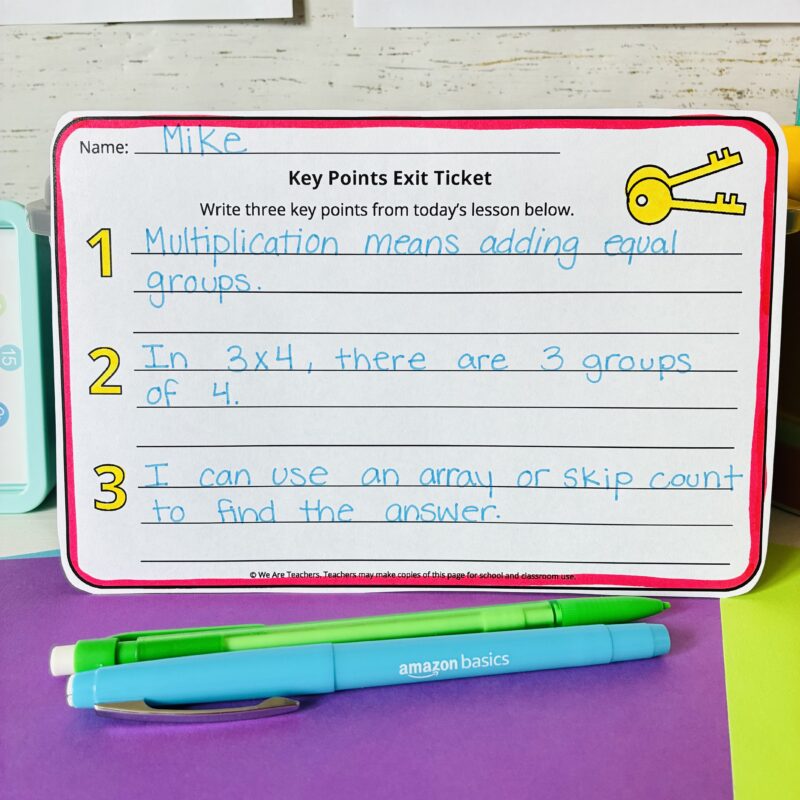 Name: Mike
Key Points Exit Ticket
Write three key points from today's lesson below.
1 Multiplication means adding equal
groups.
2 In 3x4, there are 3 groups
of 4.
3 I can use an array or skip count
to find the answer.
© We Are Teachers. Teachers may make copies of this page for school and classroom use.
15
amazon basics